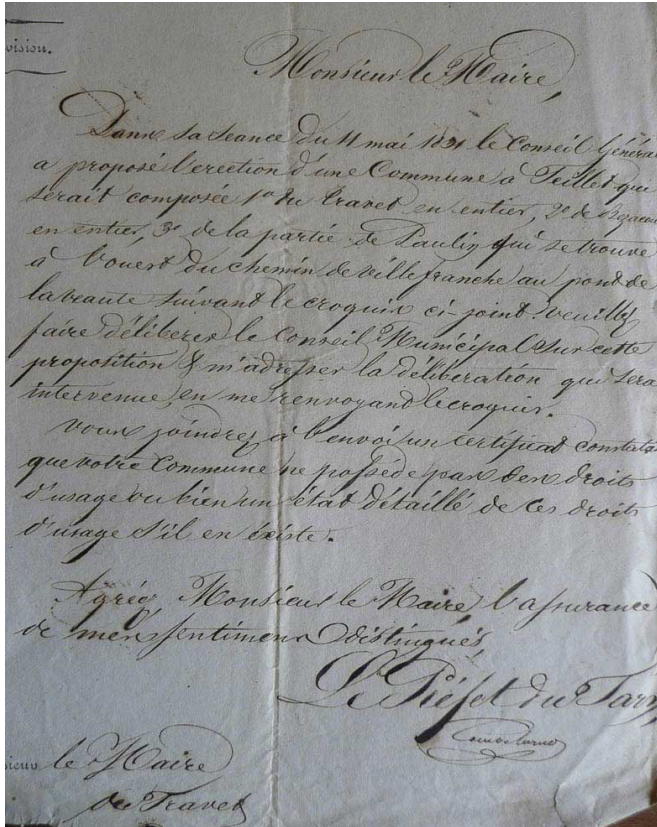 ision.
Monsieur le Maire,
Dans sa séance du 11 mai 1831 le Conseil Général
a proposé l'erection d'une Commune à Teillet qui
serait composée 1o du travet en entier, 2o de
en entier, 3o de la partie de Paulin qui se trouve
à l'ouest du chemin de villefranche au pont de
la veaute suivant le croquis ci-joint. veuillez
faire délibérer le Conseil Municipal sur cette
proposition & m'adresser la délibération qui sera
intervenue, en me renvoyant le croquis.
vous joindrez à l'envoi un certificat constata
que votre Commune ne possede pas des droits
d'usage ou bien un état détaillé de ces droits
d'usage s'il en existe.
Agréez Monsieur le Maire, l'assurance
de mes sentimens distingués,
Le Préfet du Tarn
sieur le Maire
de Travet